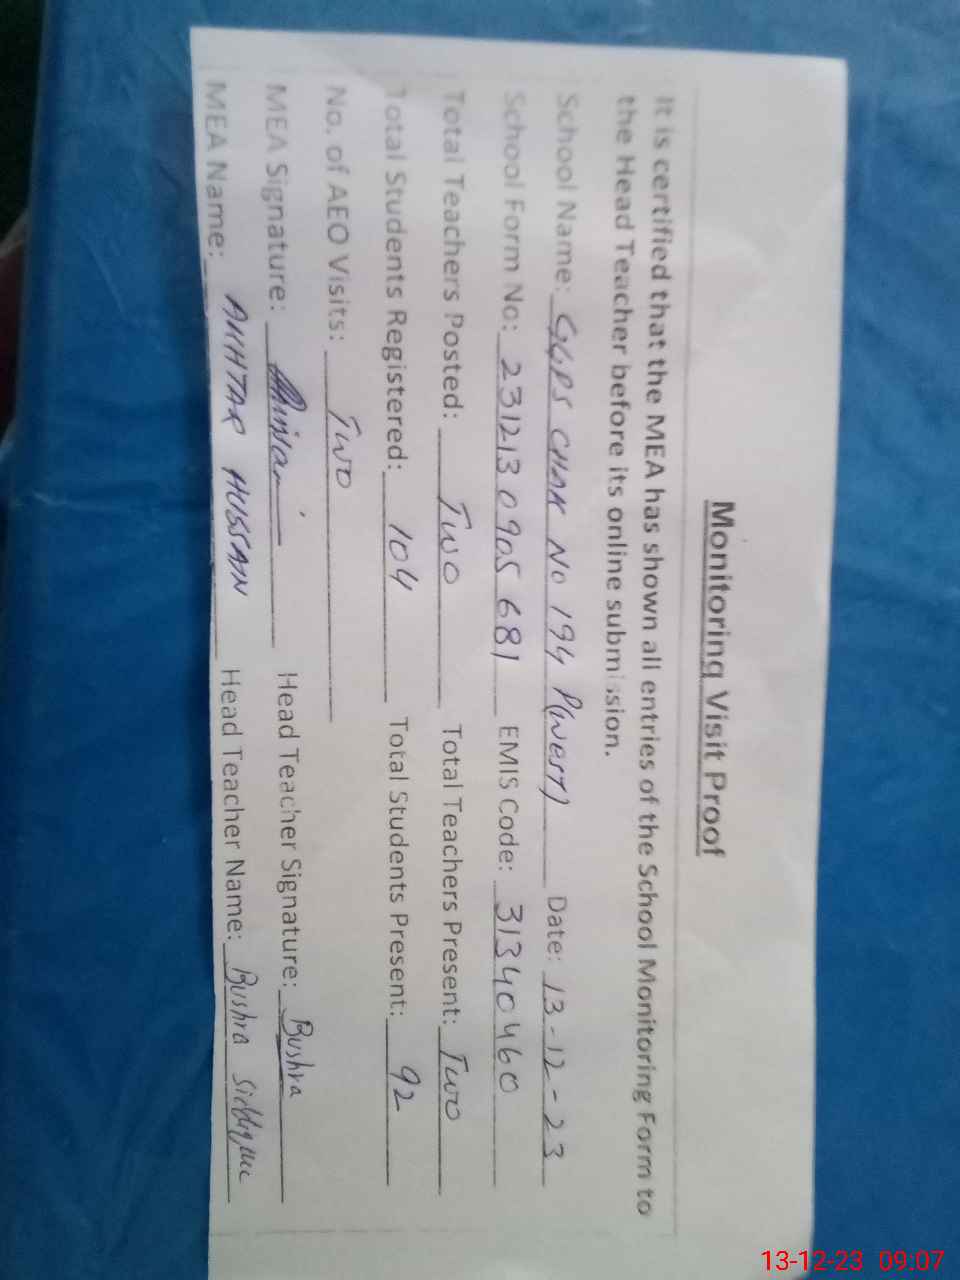 Monitoring Visit Proof
It is certified that the MEA has shown all entries of the School Monitoring Form to
the Head Teacher before its online submission.
School Name: GGPS CHAK NO 194 P(WEST) Date: 13-12-23
School Form No: 231213 0905 681 EMIS Code: 31340460
Total Teachers Posted: Two Total Teachers Present: Two
Total Students Registered: 104 Total Students Present: 92
No. of AEO Visits: Two
MEA Signature: Head Teacher Signature: Bushra
MEA Name: AKHTAR HUSSAIN Head Teacher Name: Bushra Siddique
13-12-23 09:07